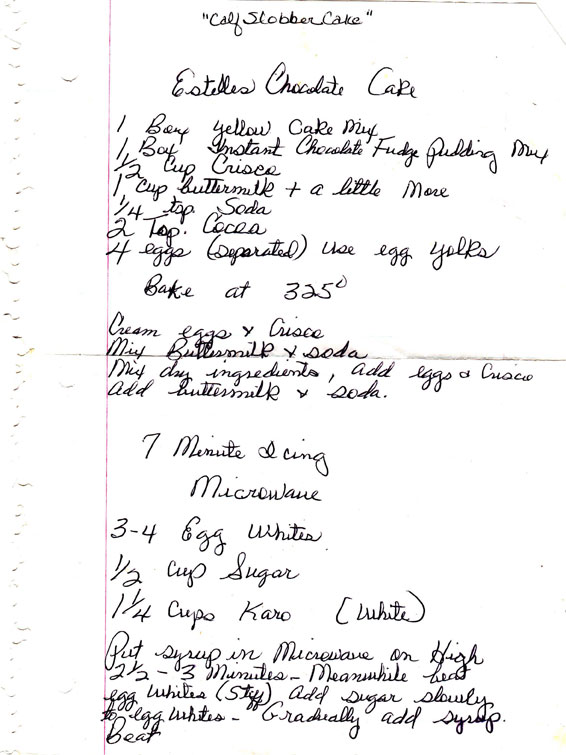 "Calf Slobber Cake"
Estelles Chocolate Cake
1 Box yellow Cake Mix
1 Box Instant Chocolate Fudge pudding Mix
1/2 Cup Crisco
1 cup buttermilk + a little More
1/4 tsp. Soda
2 Tsp. Cocoa
4 eggs (separated) use egg yolks
Bake at 325°
Cream eggs & Crisco
Mix Buttermilk & soda
Mix dry ingredients, add eggs & Crisco
Add buttermilk & soda.
7 Minute Icing
Microwave
3-4 Egg Whites
1/2 Cup Sugar
1 1/4 Cups Karo (White)
Put syrup in Microwave on High
2 1/2 - 3 Minutes - Meanwhile beat
egg whites (Stiff) add sugar slowly
to egg whites - Gradually add syrup.
Beat